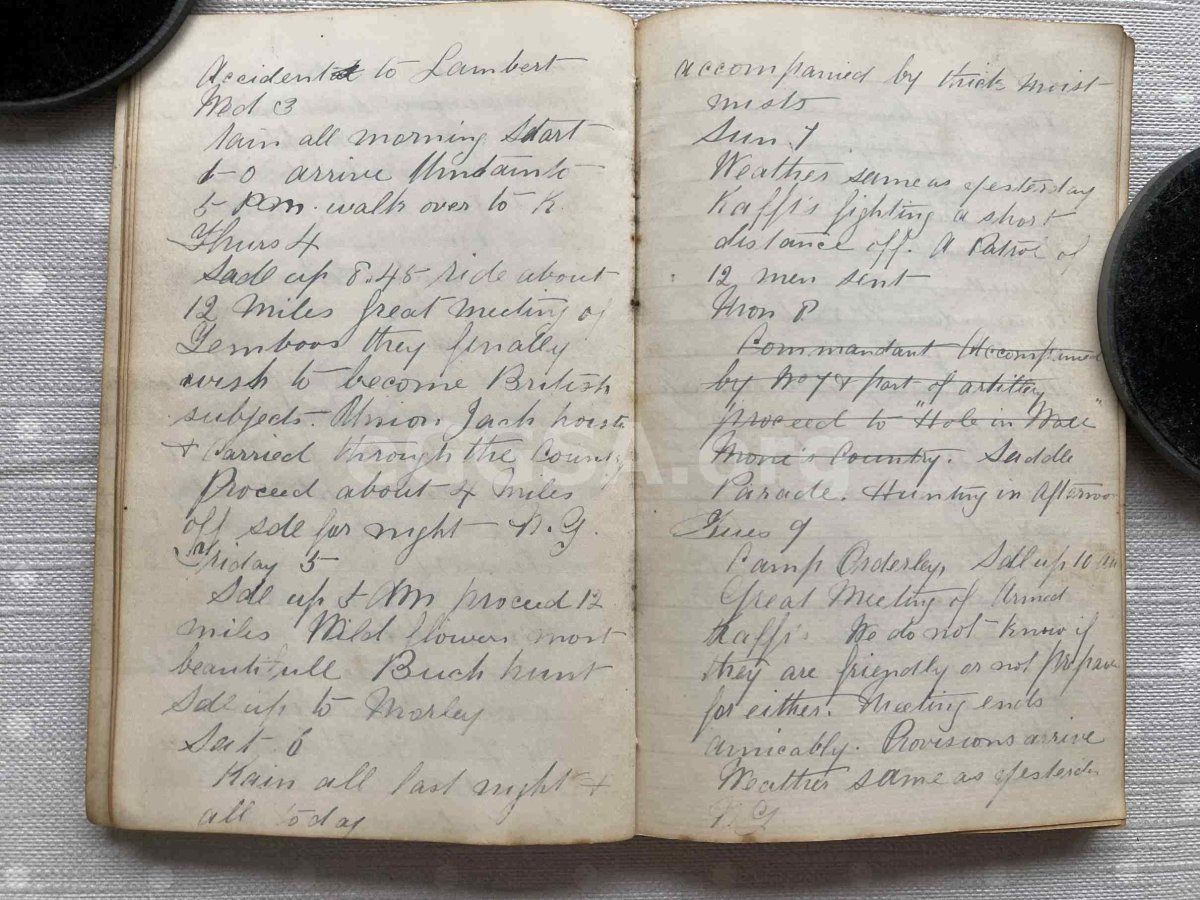 Accident to Lambert
Wed 3
Rain all morning Start
arrive
5 P.M. walk over to K.
Thurs 4
Sadl up 8.45 ride about
12 Miles Great Meeting of
Temboos they finally
wish to become British
subjects. Union Jack hoist
+ Carried through the Country
Proceed about 4 Miles
off sdle for night N. G.
Friday 5
Sdl up AM proceed 12
miles Wild flowers most
beautifull Buck hunt
Sdl up to Morley
Sat 6
Rain all last night +
all today
accompanied by thick moist
mists
Sun. 7
Weather same as yesterday
Kaffi's fighting a short
distance off. A Patrol of
12 men sent
Mon 8
Commandant Accompanied
by No 7 & part of artillery
proceed to "Hole in Wall"
Moni's Country. Saddle
Parade. Hunting in Afternoon
Tues 9
Camp Orderley, Sdl up 10 am
Great Meeting of Armed
Kaffi's We do not know if
they are friendly or not prepare
for either. Meeting ends
amicably. Provisions arrive
Weather same as yesterday
N G
edgeSA.org